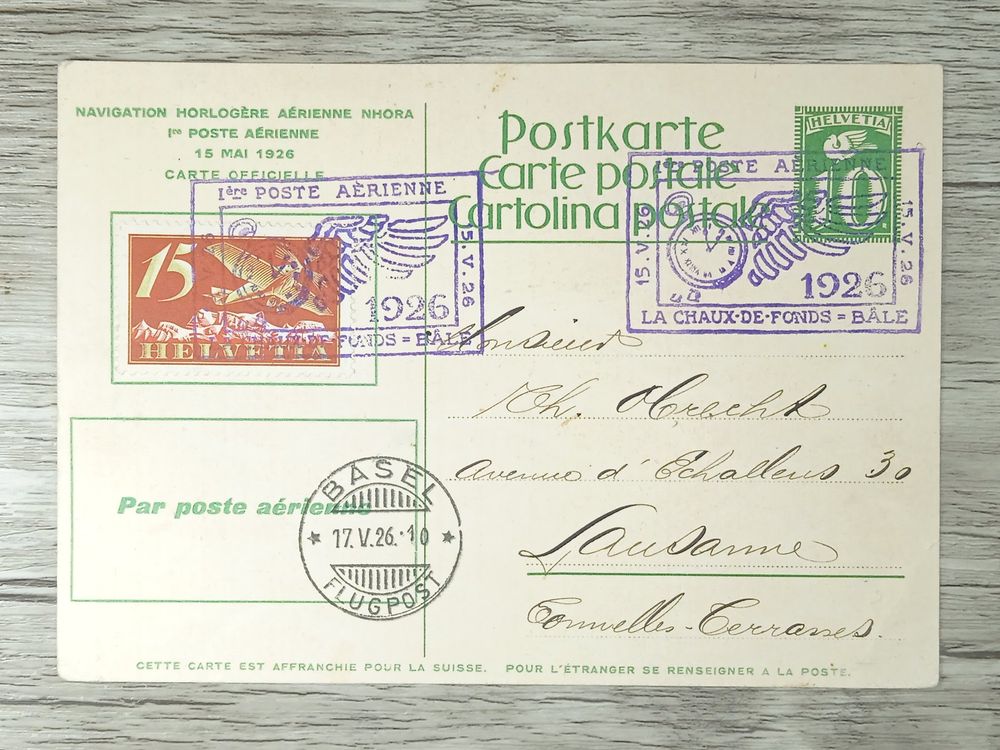 NAVIGATION HORLOGÈRE AÉRIENNE NHORA
Iʳᵉ POSTE AÉRIENNE
15 MAI 1926
CARTE OFFICIELLE
Postkarte
Carte postale
Cartolina postale
HELVETIA
10
Ière POSTE AÈRIENNE
15.V.26
1926
DE-FONDS = BÂLE
15
HELVETIA
POSTE AÈRIENNE
15.V.26
15.V.26
1926
LA CHAUX-DE-FONDS = BÂLE
Monsieur
Th.
avenue d'Echallens 30
Lausanne
Par poste aérienne
BASEL
17.V.26.-10
FLUGPOST
CETTE CARTE EST AFFRANCHIE POUR LA SUISSE. POUR L'ÉTRANGER SE RENSEIGNER A LA POSTE.